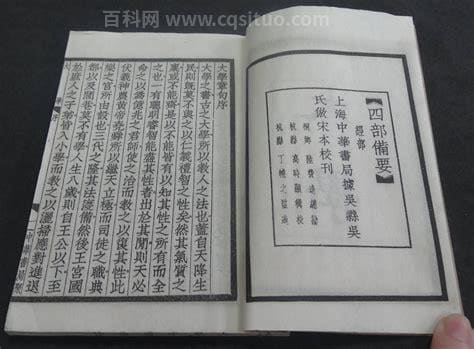 百科网 www.cqsituo.com
四部備要
經部
上海中華書局據吳縣吳
氏倣宋本校刊
桐鄉 陸費逵總勘
杭縣 高時顯輯校
杭縣 丁輔之監造
大學章句序
大學之書古之大學所以教人之法也蓋自天降生
民則既莫不與之以仁義禮智之性矣然其氣質之
稟或不能齊是以不能皆有以知其性之所有而全
之也一有聰明睿智能盡其性者出於其間則天必
命之以為億兆之君師使之治而教之以復其性此
伏羲神農黃帝堯舜所以繼天立極而司徒之職典
樂之官所由設也三代之隆其法寖備然後王宮國
都以及閭巷莫不有學人生八歲則自王公以下至
於庶人之子弟皆入小學而教之以灑掃應對進退